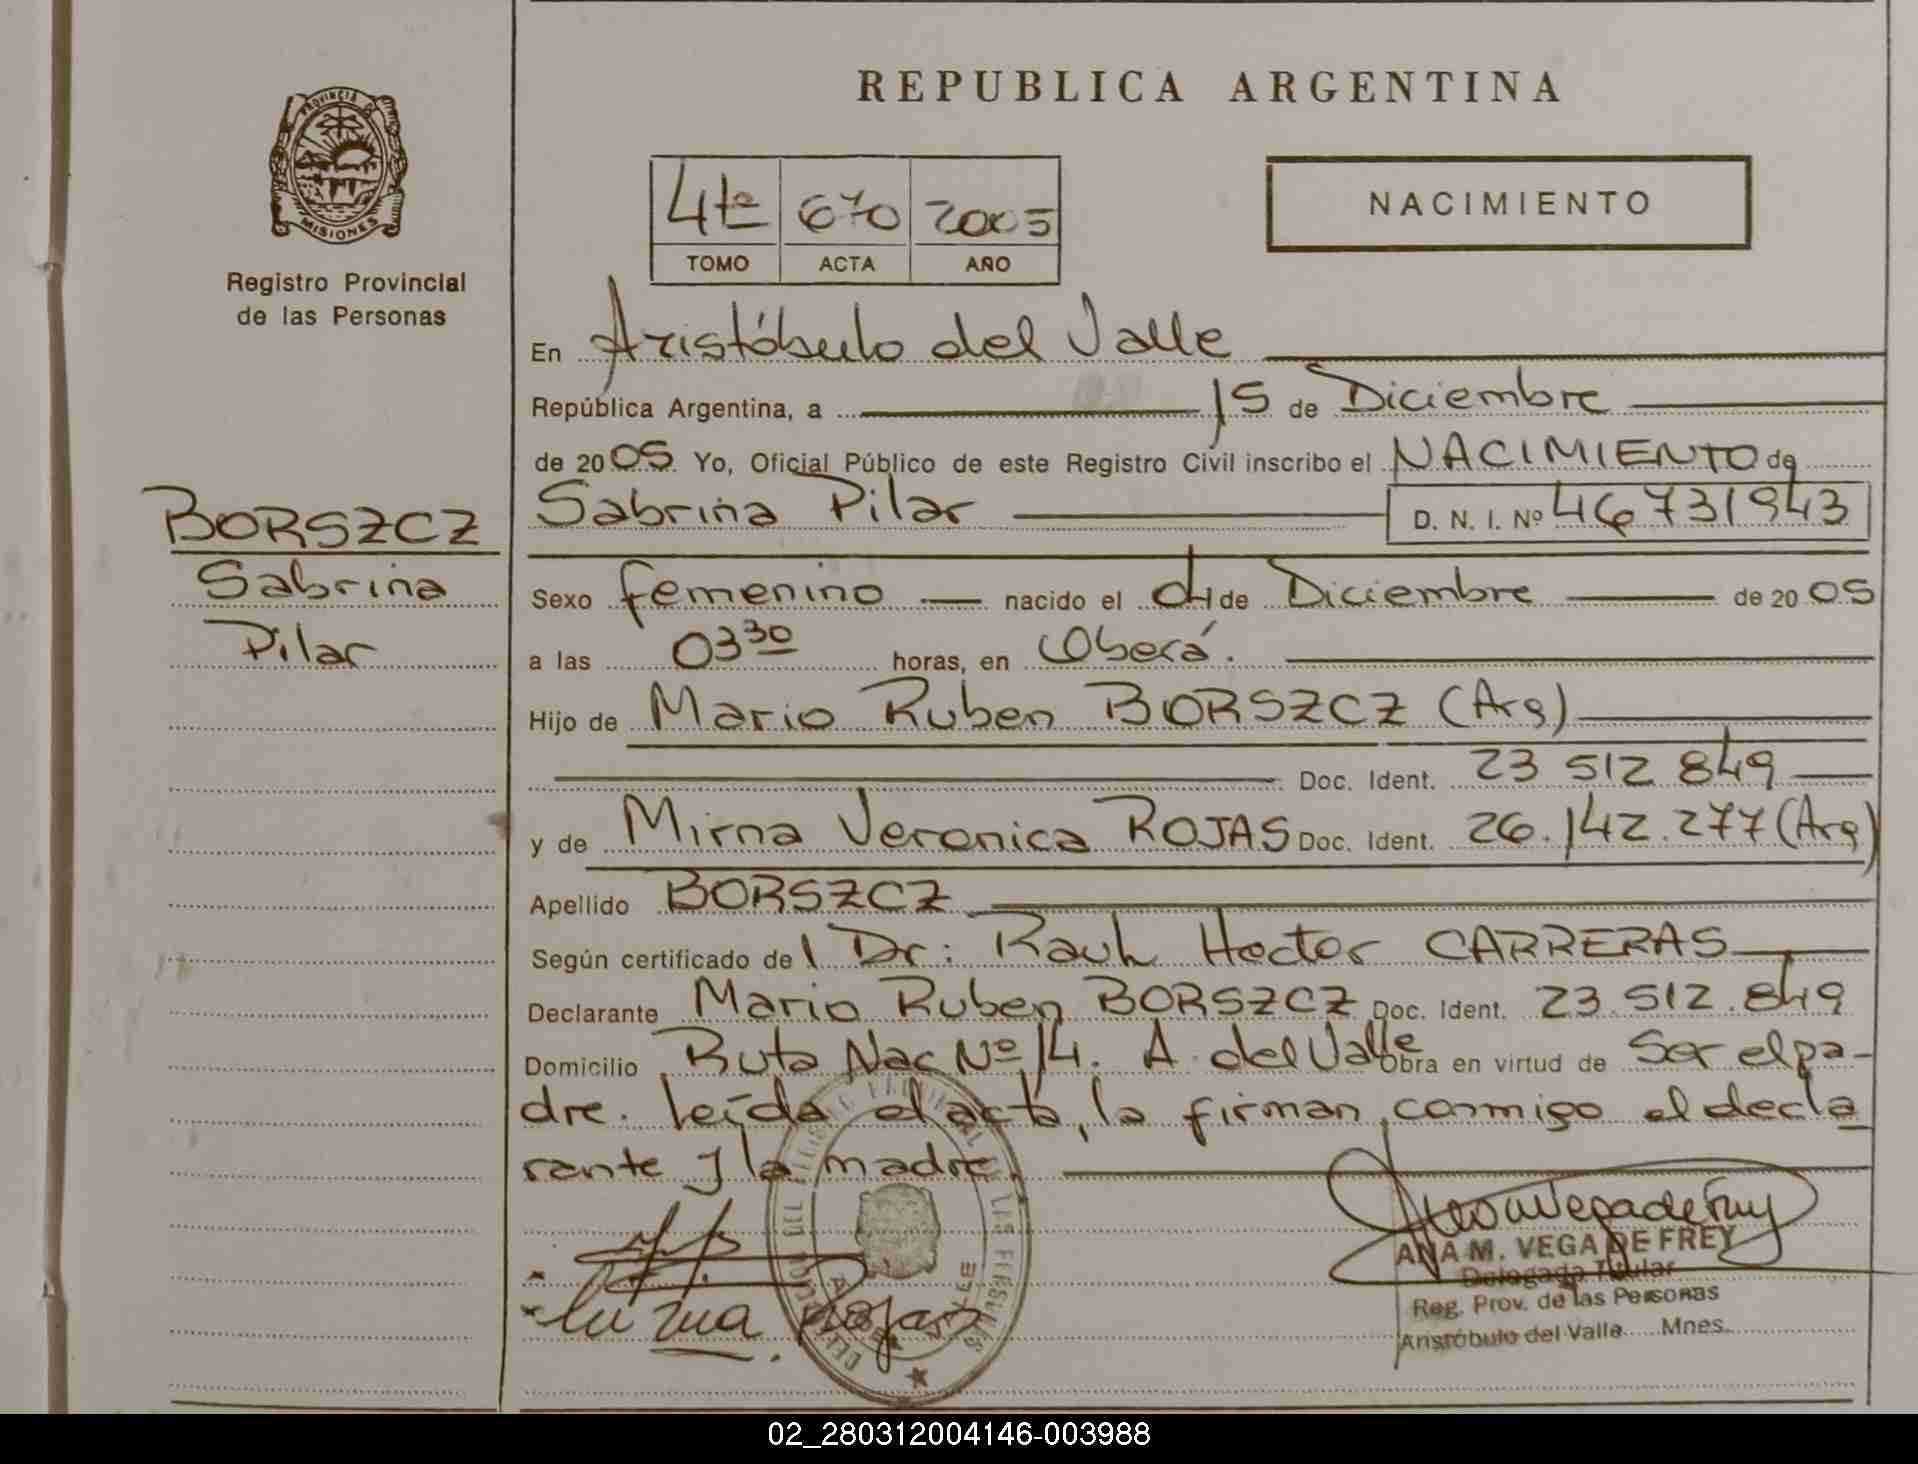 REPUBLICA ARGENTINA
PROVINCIA DE
MISIONES
Registro Provincial
de las Personas
4to 670 2005
TOMO ACTA AÑO
NACIMIENTO
En Aristóbulo del Valle
República Argentina, a 15 de Diciembre
de 2005 Yo, Oficial Público de este Registro Civil inscribo el NACIMIENTO de
Sabrina Pilar D. N. I. Nº 46731943
BORSZCZ
Sabrina
Pilar
Sexo femenino nacido el 04 de Diciembre de 2005
a las 03 30 horas, en Oberá.
Hijo de Mario Ruben BORSZCZ (Arg)
Doc. Ident. 23 512 849
y de Mirna Veronica ROJAS Doc. Ident. 26.142.277 (Arg)
Apellido BORSZCZ
Según certificado de l Dr: Raul Hector CARRERAS
Declarante Mario Ruben BORSZCZ Doc. Ident. 23 512.849
Domicilio Ruta Nac Nº 14. A. del Valle Obra en virtud de Ser el pa-
dre. Leída el acta, la firman conmigo el decla
rante y la madre.
ANA M. VEGA DE FREY
Delegada Titular
Reg. Prov. de las Personas
Aristóbulo del Valle Mnes.
Rojas
02_280312004146-003988